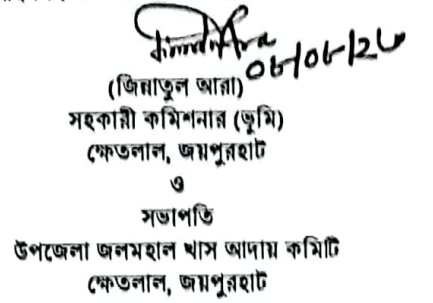 (জিন্নাতুল আরা)
সহকারী কমিশনার (ভূমি)
ক্ষেতলাল, জয়পুরহাট
ও
সভাপতি
উপজেলা জলমহাল খাস আদায় কমিটি
ক্ষেতলাল, জয়পুরহাট